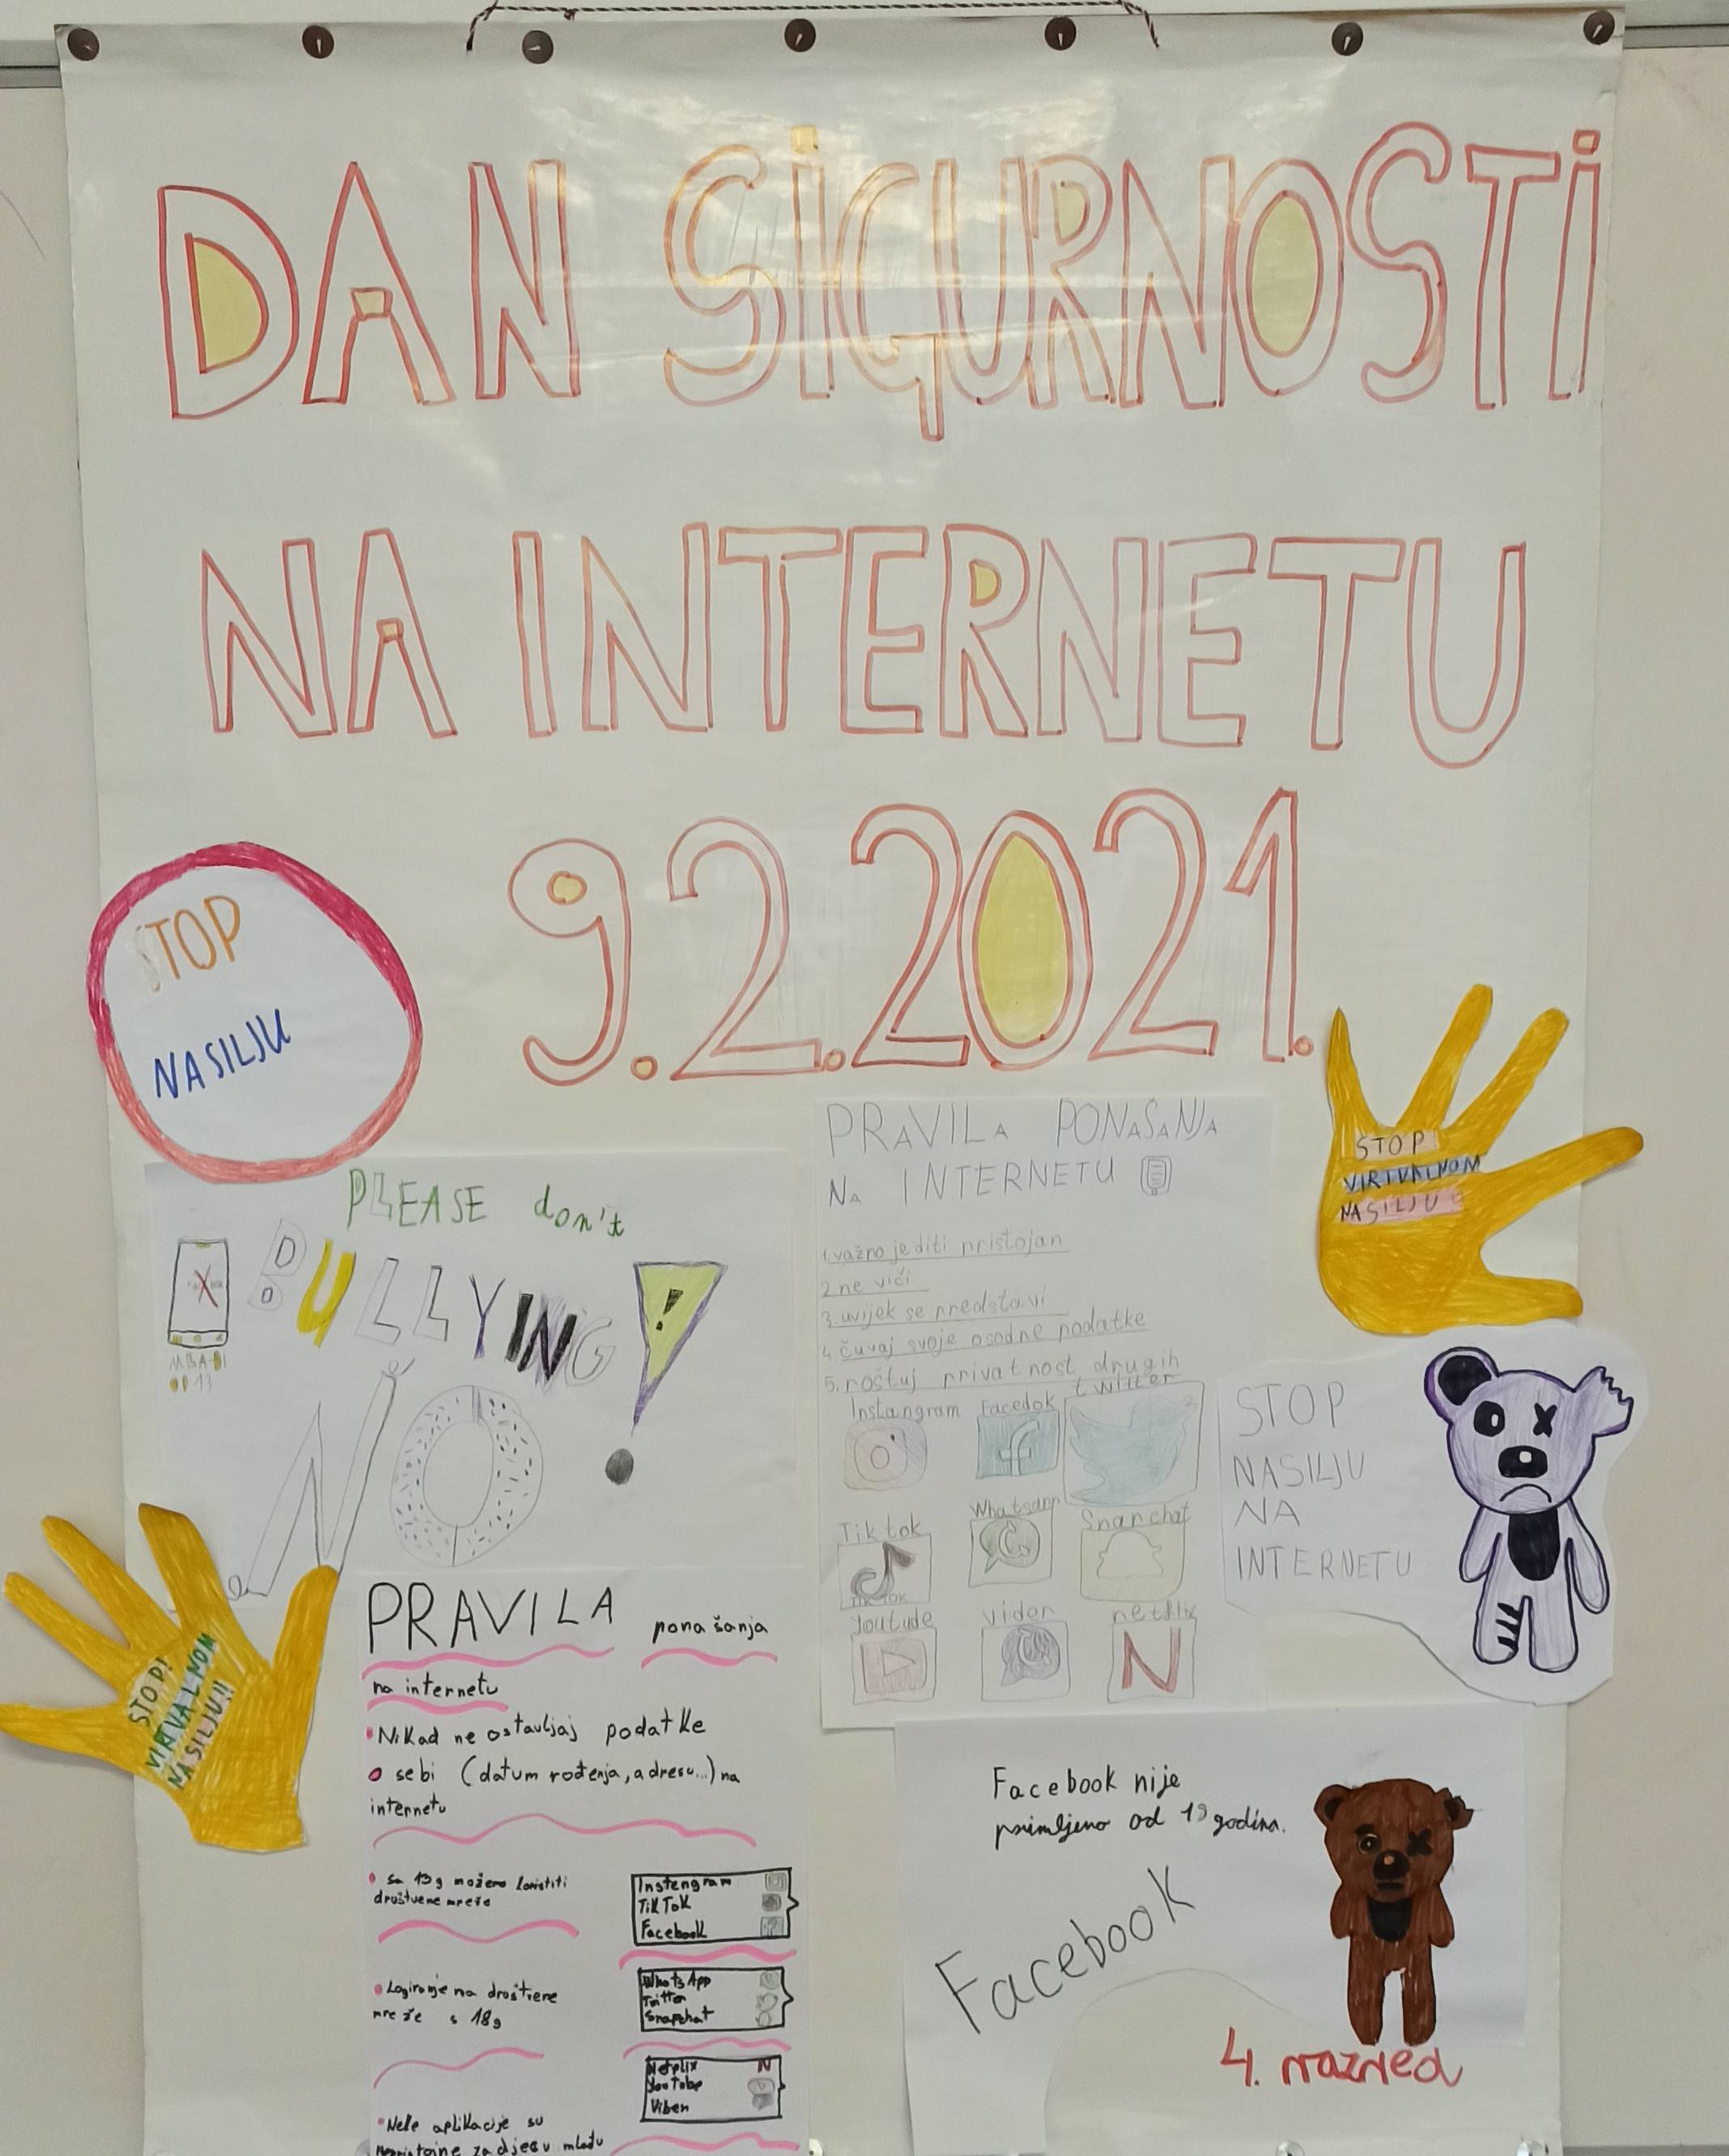 DAN SIGURNOSTI
NA INTERNETU
9.2.2021.
STOP
NASILJU
STOP
VIRTUALNOM
NASILJU
PLEASE don't
BULLYING
NO!
PRAVILA PONAŠANJA
NA INTERNETU
1. važno je diti pristojan
2. ne viči
3. uvijek se predstavi
4. čuvaj svoje osodne podatke
5. poštuj privatnost drugih
Instangram Facedok twitter
Tik tok Whatsapp Snapchat
TIK TOK
Youtude vider netflix
N
STOP
NASILJU
NA
INTERNETU
STOP!
VIRTUALNOM
NASILJU!!
PRAVILA ponašanja
na internetu
Nikad ne ostavljaj podatke
o sebi (datum rođenja, adresu...) na
internetu
Sa 13g možemo koristiti
društvene mreže
Instengram
TikTok
Facebook
Logiranje na društvene
mreže s 18g
WhatsApp
Twitter
Snapchat
Netflix N
YouTobe
Viber
Neke aplikacije su
za djecu mlađu
Facebook nije
primljeno od 19 godina.
Facebook
4. razred